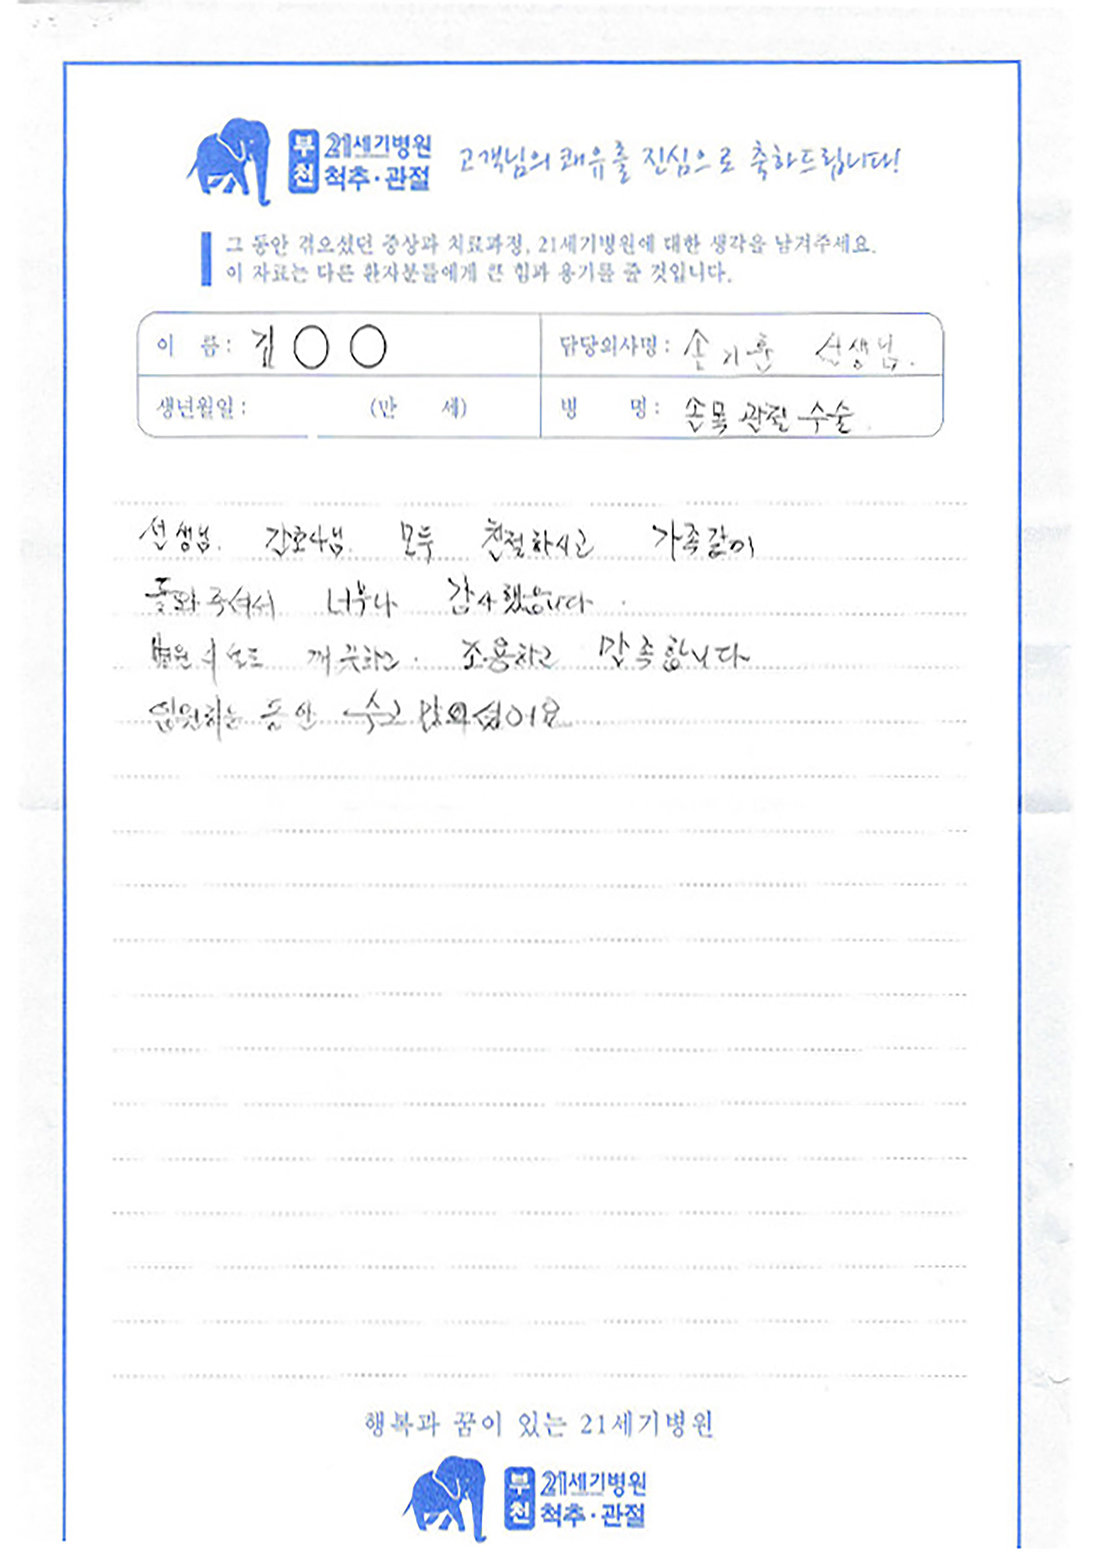 부천 21세기병원 척추·관절 고객님의 쾌유를 진심으로 축하드립니다!
그 동안 겪으셨던 증상과 치료과정, 21세기병원에 대한 생각을 남겨주세요.
이 자료는 다른 환자분들에게 큰 힘과 용기를 줄 것입니다.
이 름 : 김○○ 담당의사명 : 손기훈 선생님.
생년월일 : (만 세) 병 명 : 손목 관절 수술.
선생님. 간호사님. 모두 친절하시고 가족같이
돌봐주셔서 너무나 감사했습니다.
병원시설도 깨끗하고. 조용하고 만족합니다
입원하는 동안 수고 많으셨어요
행복과 꿈이 있는 21세기병원
부천 21세기병원 척추·관절